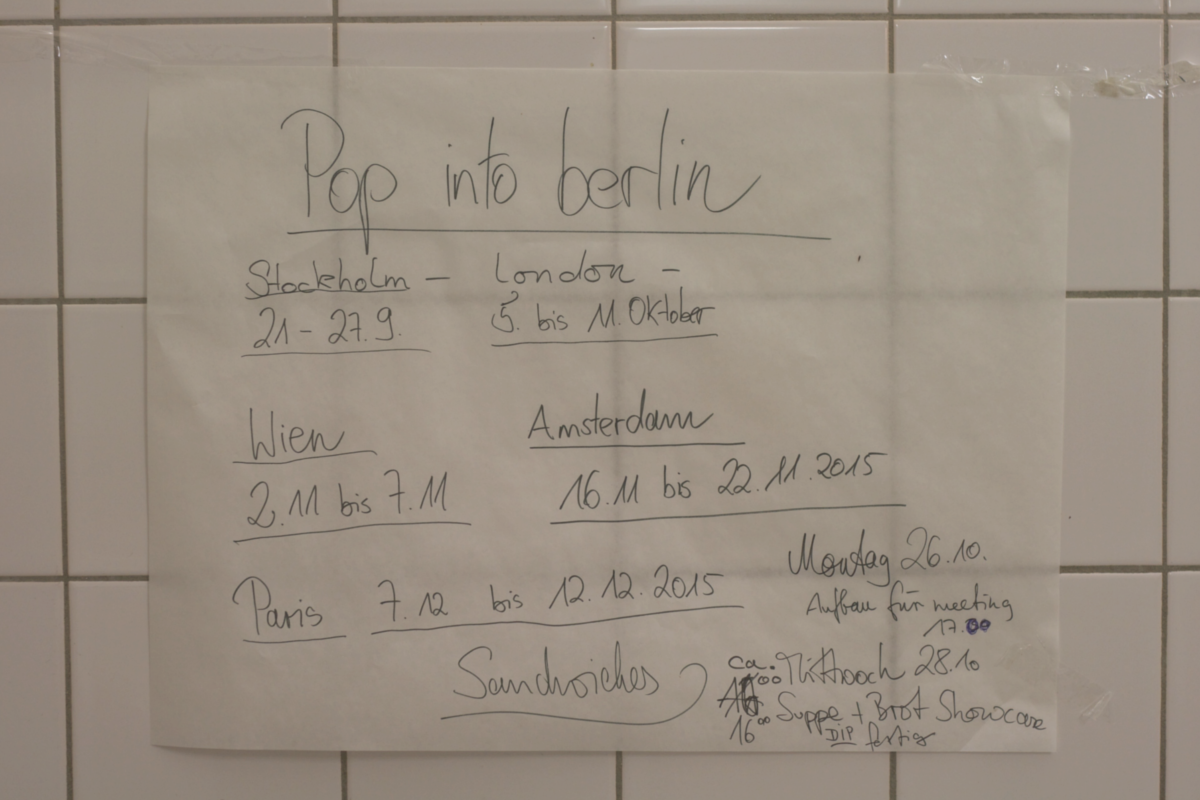 Pop into berlin
Stockholm – London –
21 – 27.9. 5. bis 11. Oktober
Wien Amsterdam
2.11 bis 7.11 16.11 bis 22.11.2015
Paris 7.12 bis 12.12.2015
Montag 26.10.
Aufbau für meeting
17.00
Sandwiches
ca. Mittwoch 28.10
Suppe + Brot Showcase
16 00 DIP fertig